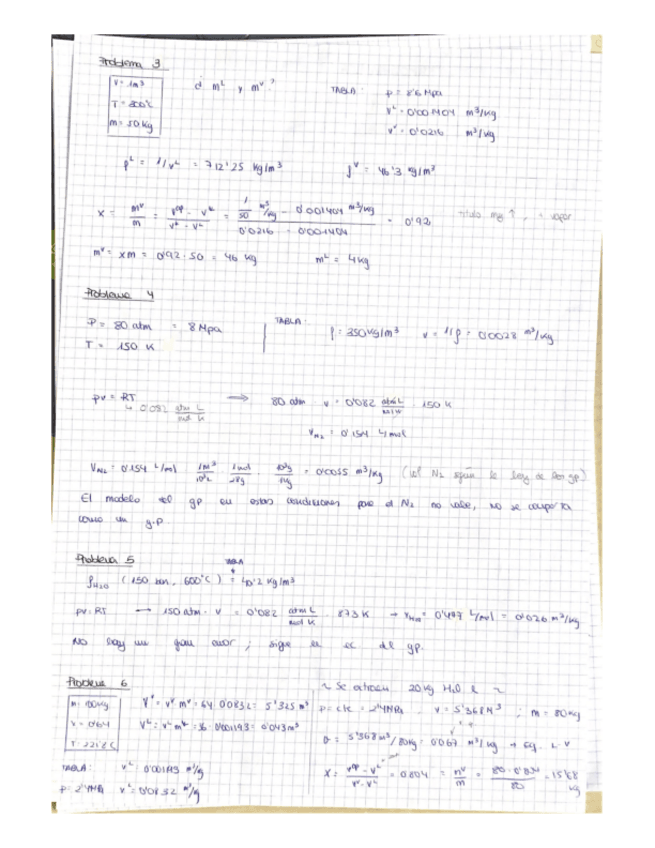 Problema 3
V = 1m³
T = 300°C
m = 50 kg
¿ m^L y m^V ?
TABLA: p = 8'6 Mpa
v^L = 0'001404 m³/kg
v^V = 0'0216 m³/kg
ρ^L = 1/v^L = 712'25 kg/m³
ρ^V = 46'3 kg/m³
x = m^V/m = (v^ap - v^L)/(v^V - v^L) = (1/50 m³/kg - 0'001404 m³/kg)/(0'0216 - 0'001404) = 0'92
m^V = xm = 0'92 · 50 = 46 kg
m^L = 4kg
Problema 4
P = 80 atm = 8 Mpa
T = 150 K
TABLA:
ρ = 350 kg/m³ v = 1/ρ = 0'0028 m³/kg
pv = RT → 80 atm · v = 0'082 atm L/mol K · 150 K
↳ 0'082 atm L/mol K
v_N2 = 0'154 L/mol
v_N2 = 0'154 L/mol · 1m³/10³L · 1mol/28g · 10³g/1kg = 0'0055 m³/kg
El modelo del gp en estas condiciones para el N2 no vale, no se comporta
como un g.p.
Problema 5
TABLA
ρ_H2O (150 bar, 600°C) = 40'2 kg/m³
pv = RT → 150 atm · v = 0'082 atm L/mol K · 873 K → v_H2O = 0'477 L/mol = 0'026 m³/kg
No hay un gran error; sigue la ec del gp.
Problema 6
m = 100kg
x = 0'64
V^V = v^V m^V = 64 · 0'0832 = 5'325 m³
V^L = v^L m^L = 36 · 0'001193 = 0'043 m³
TABLA: v^L = 0'001193 m³/kg
p = 2'4 MPa v^V = 0'0832 m³/kg
Se extraen 20 kg
p = cte = 2'4 MPa V = 5'368 m³ ; m = 80 kg
5'368 m³/80kg = 0'067 m³/kg → eq. L-V
x = (v^ap - v^L)/(v^V - v^L) = 0'804 = m^V/m